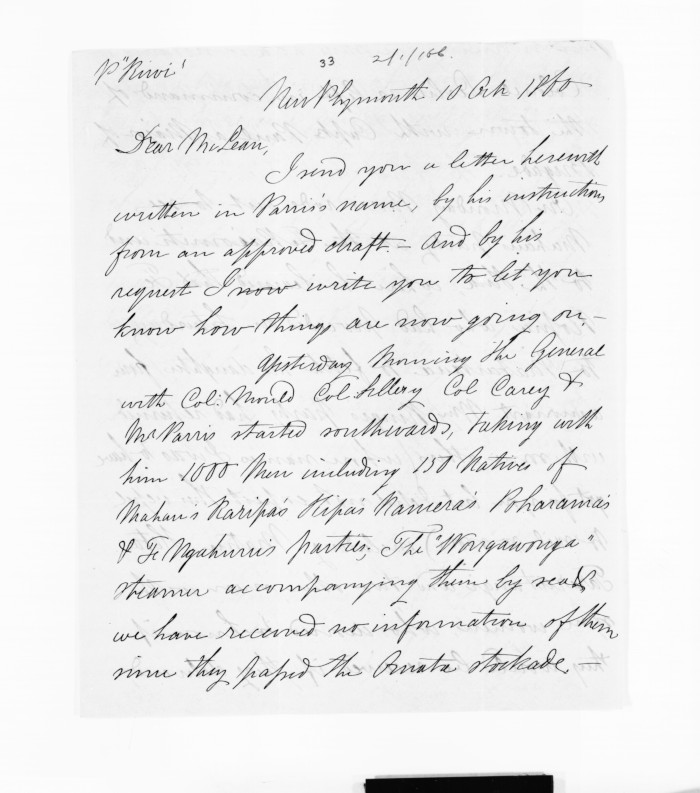 P "Kiwi"
33
2/1/166.
New Plymouth 10 Oct 1860
Dear McLean,
I send you a letter herewith
written in Parris's name, by his instructions
from an approved draft. – And by his
request I now write you to let you
know how things are now going on. –
Yesterday Morning the General
with Col: Mould Col. Sillery Col Carey &
Mr Parris started southwards, taking with
him 1000 Men including 150 Natives of
Mahau's Karipa's Hipa's Ramera's Poharama's
& Te Ngahuru's parties; The "Wongawonga"
steamer accompanying them by sea &
we have received no information of them
since they passed the Omata stockade. –